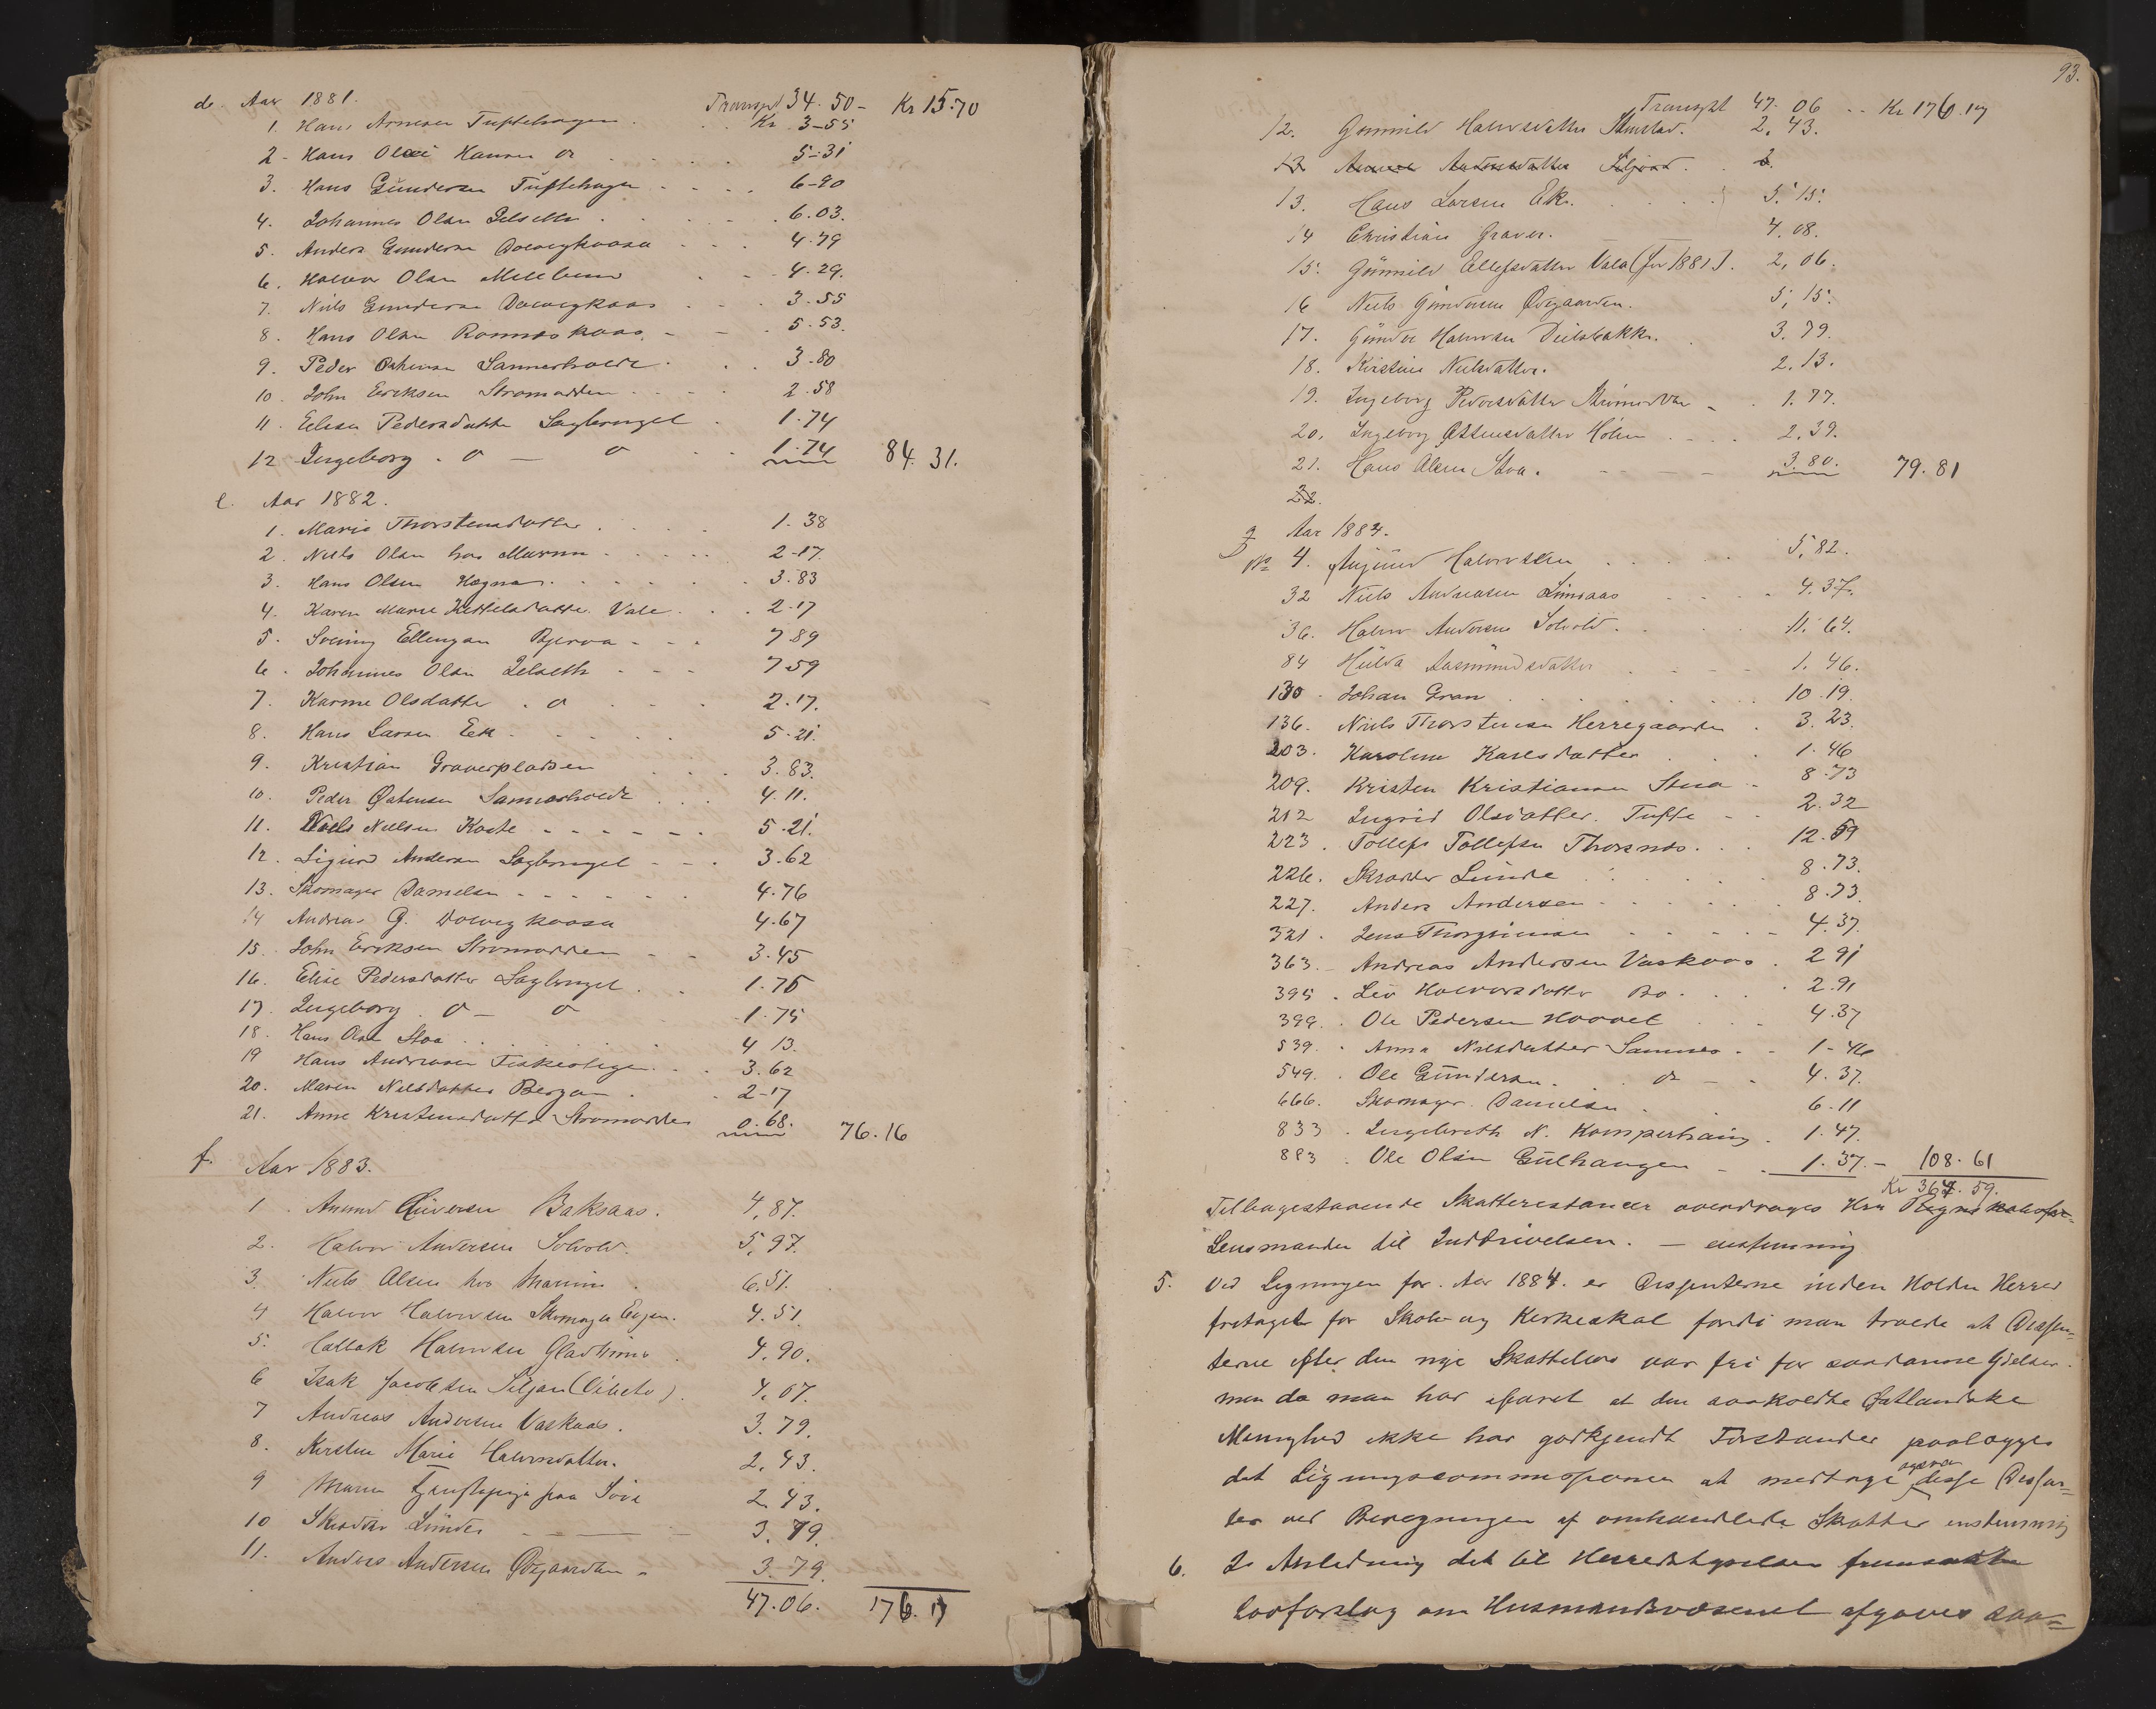 d. Aar 1881. Transpt 34.50- Kr 15.70
1. Hans Arnesen Tuftehagen . . Kr. 3-55
2- Hans Olai Hansen do . . . . 5-31
3. Hans Gundersen Tuftehagen . . . . 6-90
4. Johannes Olsen Jelseth . . . . 6.03.
5. Anders Gundersen Dolvegkaasa . . . 4.79
6. Halvor Olsen Mellum . . 4.29.
7. Niels Gundersen Dolvegkaas . . . 3.55
8. Hans Olsen Romnæskaas . - . 5.53.
9. Peder Østensen Sannesholdt . . . 3.80
10. John Eriksen Strømodden . . . . 2.58
11. Elise Pedersdatter Saglengel . 1.74
12 Ingeborg . do — do . . 1.74 84.31.
e. Aar 1882.
1. Marie Thorstensdatter . . . . 1.38
2. Niels Olsen hos Maren . . . . . 2-17.
3. Hans Olsen Hogna . . . . . . 3.83
4. Karen Marie Kittelsdatter Vale . . . 2-17
5. Svening Ellingsen Bjerva - - . 7 89
6. Johannes Olsen Jelseth - - - 7 59
7. Karine Olsdatter . do . . . 2.17.
8. Hans Larsen Eek . . . . . 5.21.
9. Kristian Graverpladsen . . . 3.83.
10. Peder Østensen Sannesholdt . . . 4.11.
11. Niels Nielsen Kaste - - - - - - . 5.21.
12. Sigurd Andersen Saglengel - - . 3.62
13. Skomager Danielsen - - - - - - 4.76
14 Andreas G. Dolvegkaasa 4.67
15. John Eriksen Strømodden - - 3.45
16. Elise Pedersdatter Saglengel . . 1.75
17. Ingeborg . do — do - 1.75
18. Hans Olsen Stoa . . . 4 13.
19 Hans Andreasen Fiskerbolig . . . 3.62
20. Maren Nielsdatter Bergan . . 2-17
21. Anne Kristensdatter Strømodden 0.68. 76.16
f. Aar 1883.
1. Amund Baksaas. 4,87.
2. Halvor Andersen Solvold. 5,97.
3. Niels Olsen hos Maren . 6.51.
4 Halvor Halvorsen Skomager Evjen. 4.51.
5. Hallvor 4,90.
6 Isak Jacobsen Siljan ( ). 4,07.
7 Andreas Andersen Vaskaas. 3.79.
8. Kirsten Marie Halvorsdatter. 2,43.
9 Maren Tjenestepige paa Sova 2.43.
10 Skrædder Lunde - — — - 3.79.
11. Anders Andersen Ødegaarden - 3.79.
47.06. 176.17
93.
Transpt 47.06 . . Kr 176.17
12. Gunnild Halvorsdatter Stenstad. 2,43.
13. Hans Larsen Ek . . . . . 5.15.
14 Christian Graver. — — 4.08.
15. Gunnild Ellefsdatter Vala (for 1881). 2,06.
16 Niels Gundersen Ødegaarden. 5,15.
17. Gunder Halvorsen Dielsbakke. . 3.79.
18. Kirstine Nielsdatter. 2.13.
19. Ingeborg Pedersdatter - . 1.77.
20. Ingeborg Østensdatter Holm . . . . 2.39.
21. Hans Olsen Stoa. - - - - 3.80. 79.81
22.
g Aar 1884.
No 4. Halvorsen . . . . . 5,82.
32 Niels Andreasen Limiaas . . . 4.37.
36. Halvor Andersen Solvold. . . 11.64.
84 Hilda Aasmundsdatter . . . 1.46.
130 . Johan Gran . . . . . . . . 10.19.
136. Niels Thorstensen Herregaarden . 3.23.
203. Karoline Karlsdatter . . . 1.46
209. Kristen Kristiansen Stua - 8.73
212 Ingrid Olsdatter. Tufte - - 2.32
223. Tollefs Tollefsen Thorsnes . . . 12.59
226. Skrædder Lunde . . . . . 8.73.
227. Anders Andersen - - - - - . 8.73.
321. Jens Thorgrimsen - - - - - 4.37.
363. - Andreas Andersen Vaskaas . 2 91
395. Liv Halvorsdatter Bø . . . . 2.91
399. . Ole Pedersen Hoovet . . - 4.37
539. . Anna Nielsdatter Sannes . - 1-46
549. . Ole Gundersen . . do - . 4.37.
666. Skomager Danielsen . . 6.11
833. Ingebreth N. Komperhaug . 1.47.
883. Ole Olsen Gulhaugen - - . 1.37.- 108.61
Kr 364.59.
Tilbagestaaende Skatterestancer overdrages Hrr
Lensmanden til Inddrivelsen. — enstemmig
5. Ved Ligningen for Aar 1884. er Dissenterne inden Holden Herred
fritaget for Skole- og Kirkeskat fordi man troede at Dissen-
terne efter den nye Skattelov var fri for saadanne Ydelser.
men da man har erfaret at den saakaldte Østlandske
Menighed ikke har godkjendt Forstander paalægges
det Ligningscommissionen at medtage ogsaa disse Dissen=
ter ved Beregningen af omhandlede Skatter enstemmig
6. I Anledning det til Herredstyrelsen fremsatte
Lovforslag om Husmandsvæsenet afgaves saa=